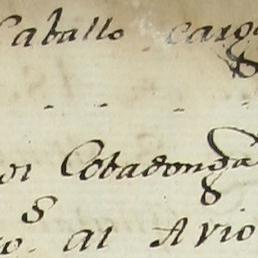 Caballo carg
or Cobadonga
o. al Avio